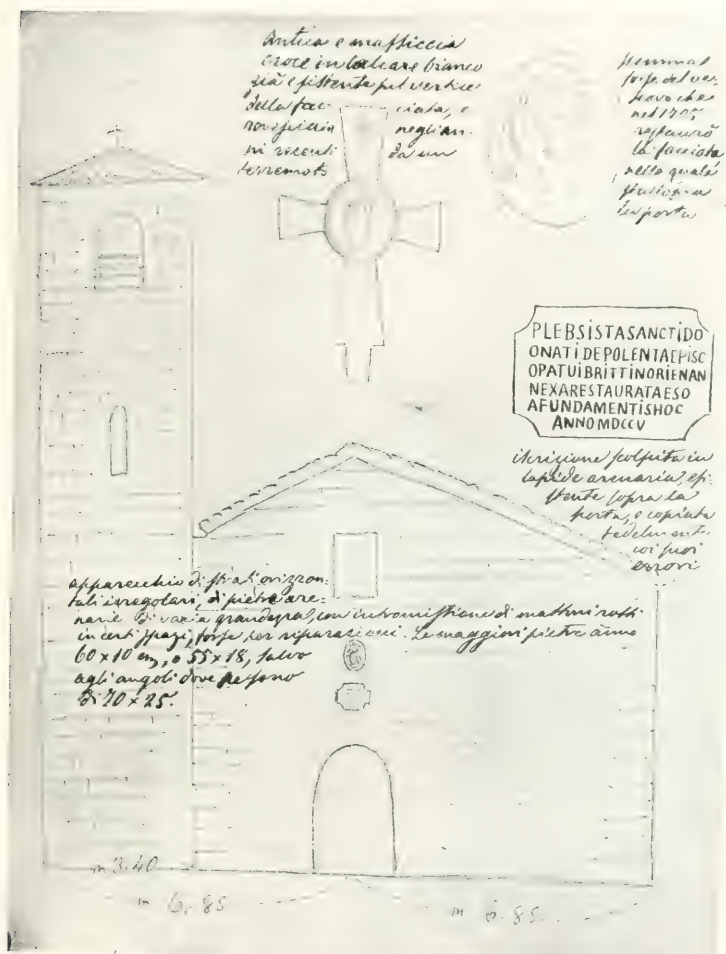 Antica e massiccia
croce in calcare bianco
già esistente sul vertice
della fac- ciata, e
negli an-
ni recenti da un
terremoto
stemma
forse del ve-
scovo che
nel 1705
restaurò
la facciata
nella quale
la porta
PLEBSISTASANCTIDO
ONATIDEPOLENTAEPISC
OPATUIBRITTINORIENAN
NEXARESTAURATAESO
AFUNDAMENTISHOC
ANNOMDCCV
iscrizione scolpita in
lapide arenaria, esi-
stente sopra la
porta, e copiata
fedelment.
coi suoi
errori
apparecchio di strati orizzon-
tali irregolari, di pietre are-
narie di varia grandezza, con intromissione di mattoni rotti
in certi spazi, forse per riparazioni. Le maggiori pietre ànno
60 x 10 cm, o 55 x 18, salvo
agli angoli dove
di 70 x 25.
m 3.40
m 6.85
m 6.85